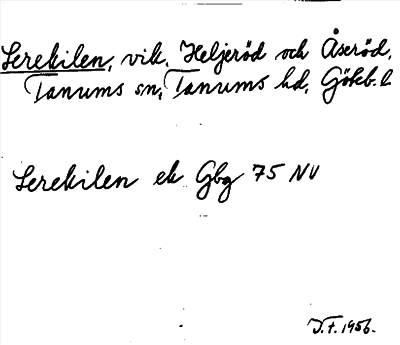 Lerekilen, vik, Heljeröd och Åseröd,
Tanums sn, Tanums hd, Göteb. l
Lerekilen ek Gbg 75 NV
J.t. 1956.